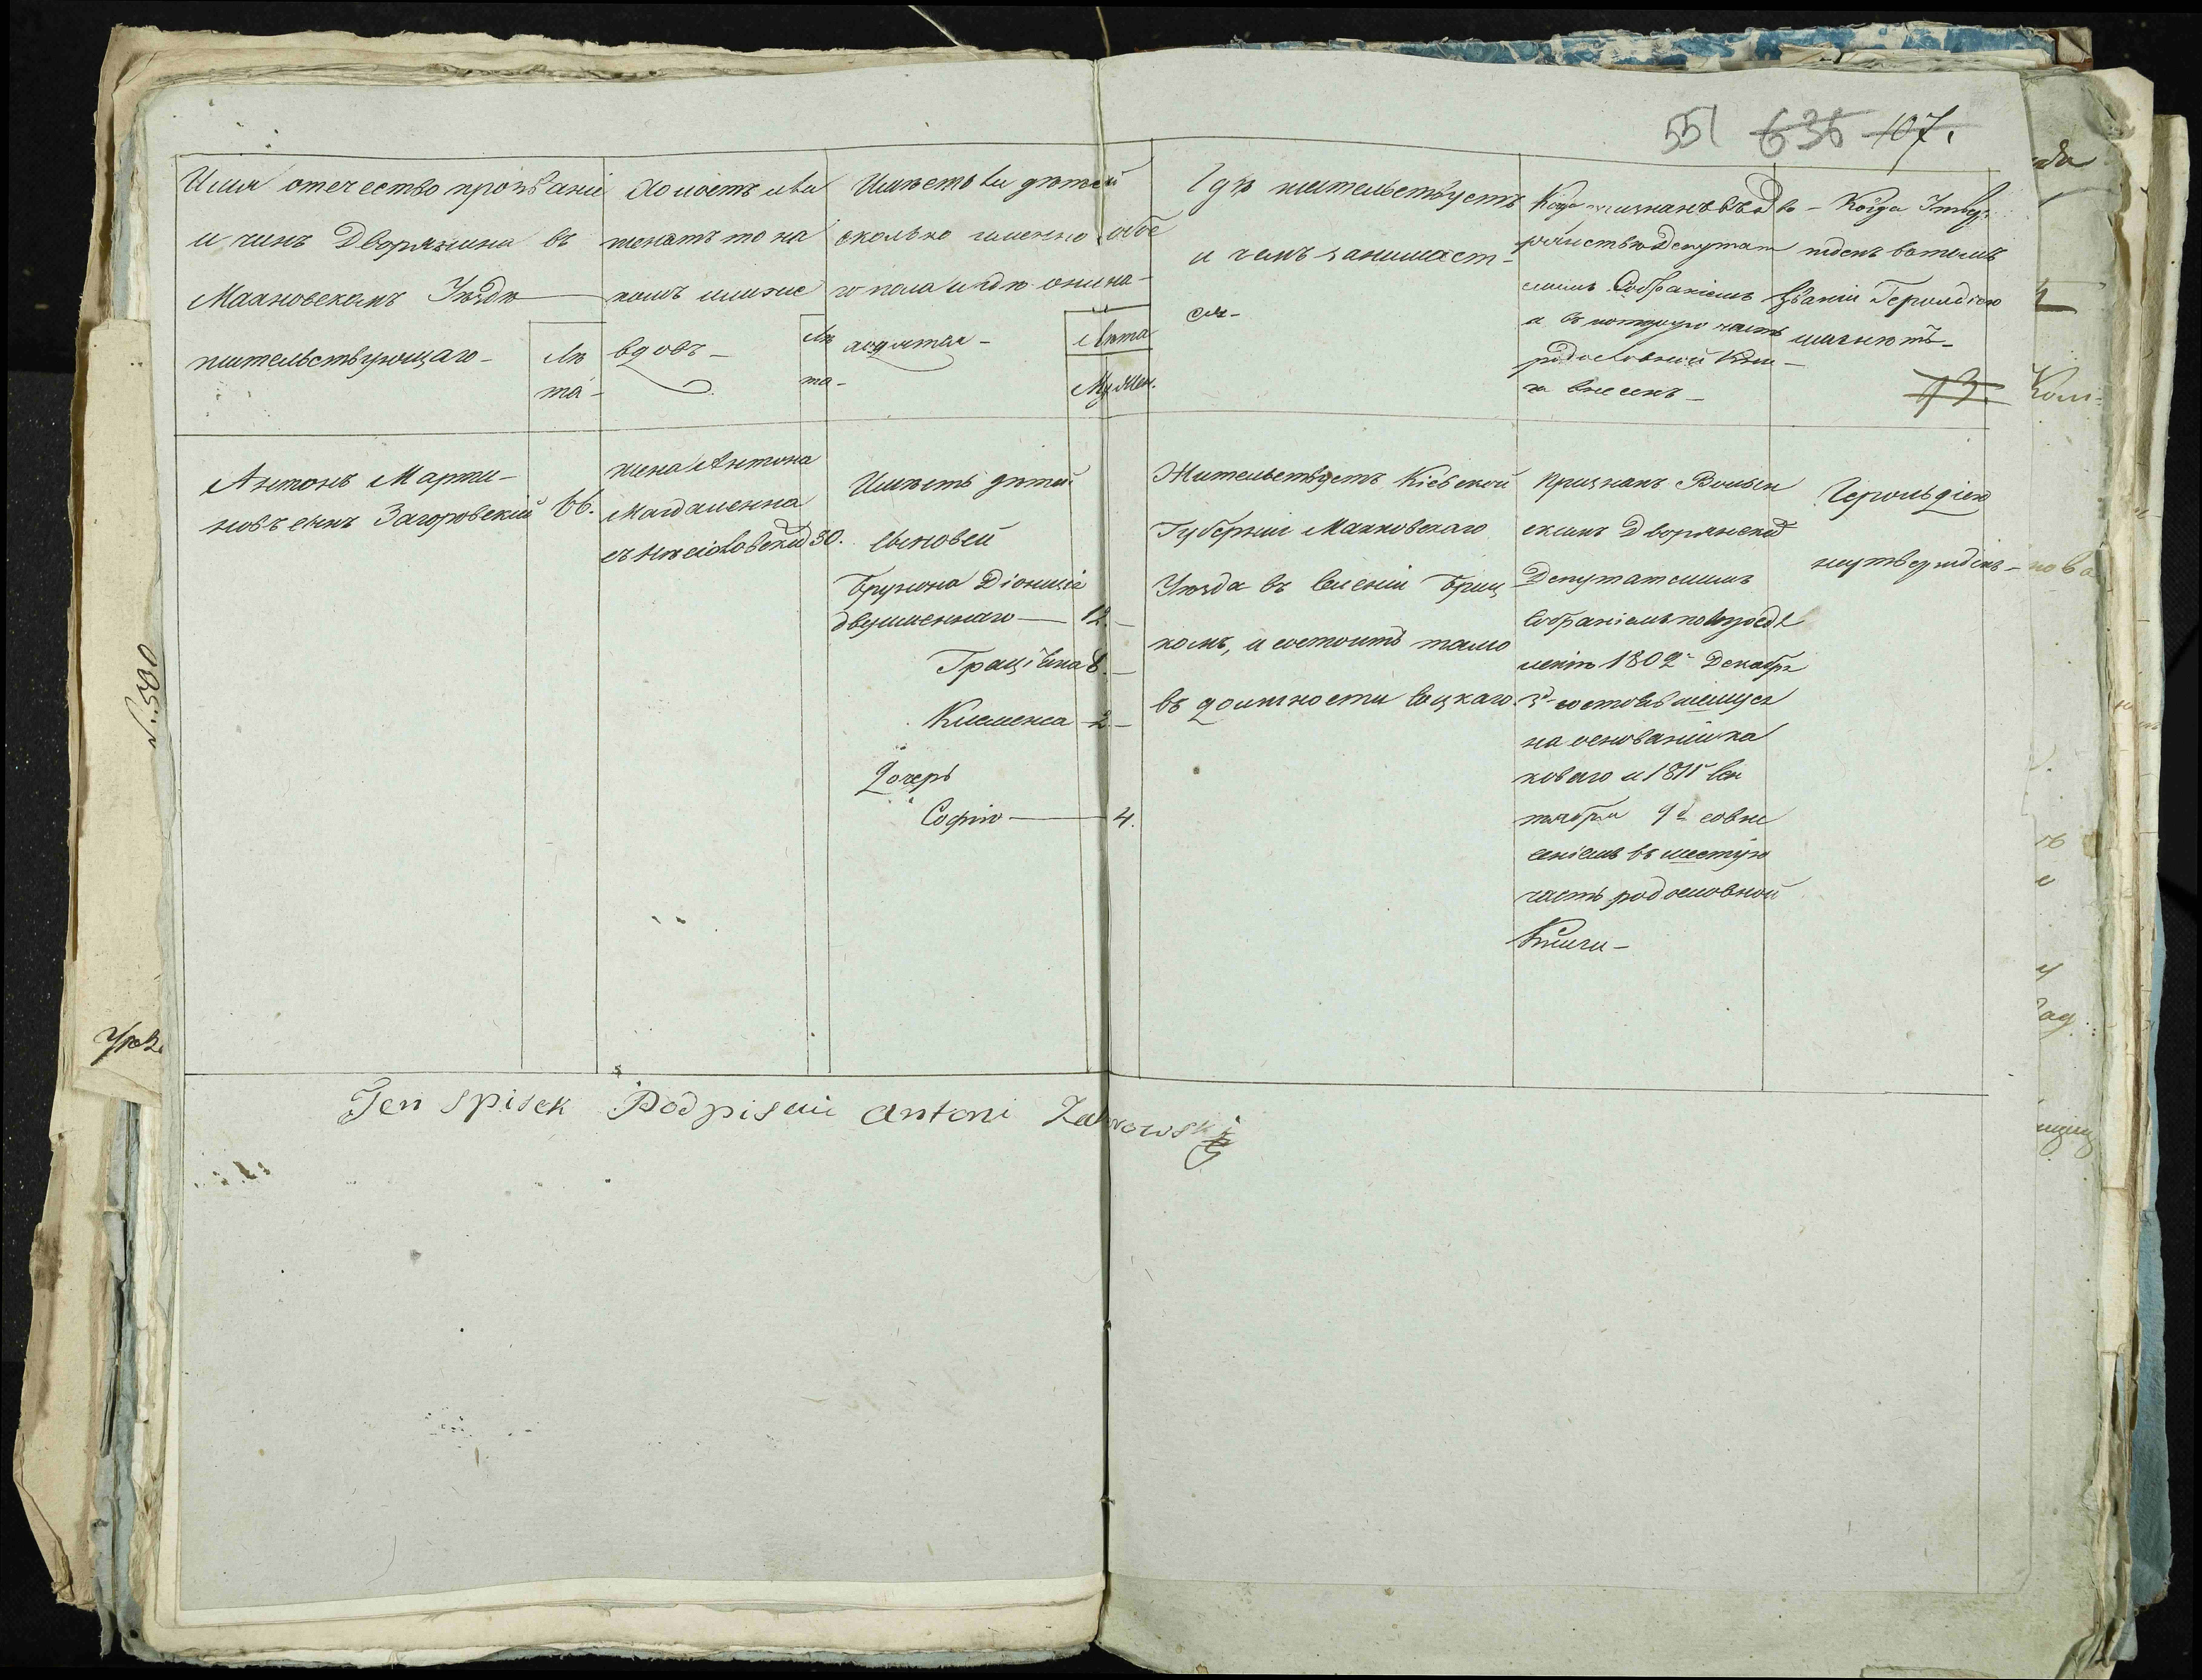 551 636 107.
Имя отечество прозваніе
и чинъ Дворянина въ
Махновскомъ Уѣздѣ
жительствующаго-
Лѣ
та-
Холостъ или
женатъ то на
комъ или же
вдовъ-
Лѣ
та-
Имѣетъ ли дѣтей
сколько именно обое
го пола и гдѣ они на-
ходятся-
Лѣта
Му. Жен.
Гдѣ жительствуетъ
и чемъ занимает-
ся-
Когда признанъ въ Дво-
рянствѣ Депутат
скимъ Собраніемъ
и въ которую часть
родословной Кни-
ги внесенъ-
Когда Утвер-
жденъ въ томъ
Званіи Герольдіею
или нетъ-
13.
Антонъ Марти-
новъ сынъ Загоровскій
66.
жена Антона
Магдаленна
30.
Имѣетъ дѣтей
Сыновей
Брунона Діонизія
двуименнаго — 12.
Граціяна 8.
Клеменса 2
Дочерь
Софію — 4.
Жительствуетъ Кіевской
Губерніи Махновскаго
Уѣзда въ Селеніи
и состоитъ тамо
въ должности
Признанъ Волын
скимъ Дворянскимъ
Депутатскимъ
Собраніемъ по опредѣ
ленію 1802 г Декабря
3 д состоявшемуся
на основаніи ка
коваго и 1811 Сен
тября 9 д совне
сеніемъ въ шестую
часть родословной
Книги-
Герольдіею
неутвержденъ-
Ten spisek Podpisuie Antoni Zahorowski
№ 590